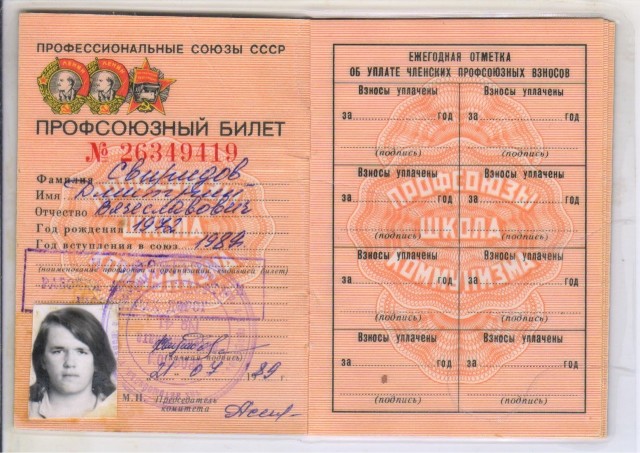 ПРОФЕССИОНАЛЬНЫЕ СОЮЗЫ СССР
ПРОФСОЮЗНЫЙ БИЛЕТ
№ 26349419
Фамилия Свиридов
Имя Дмитрий
Отчество Вячеславович
Год рождения 1972
Год вступления в союз 1987
(наименование профсоюза и организации, выдавшей билет)
(личная подпись)
21 07 1989 г.
М.П. Председатель
комитета
ЕЖЕГОДНАЯ ОТМЕТКА
ОБ УПЛАТЕ ЧЛЕНСКИХ ПРОФСОЮЗНЫХ ВЗНОСОВ
Взносы уплачены Взносы уплачены
за год за год
(подпись) (подпись)
Взносы уплачены Взносы уплачены
за год за год
(подпись) (подпись)
Взносы уплачены Взносы уплачены
за год за год
(подпись) (подпись)
Взносы уплачены Взносы уплачены
за год за год
(подпись) (подпись)
ПРОФСОЮЗЫ
ШКОЛА
КОММУНИЗМА